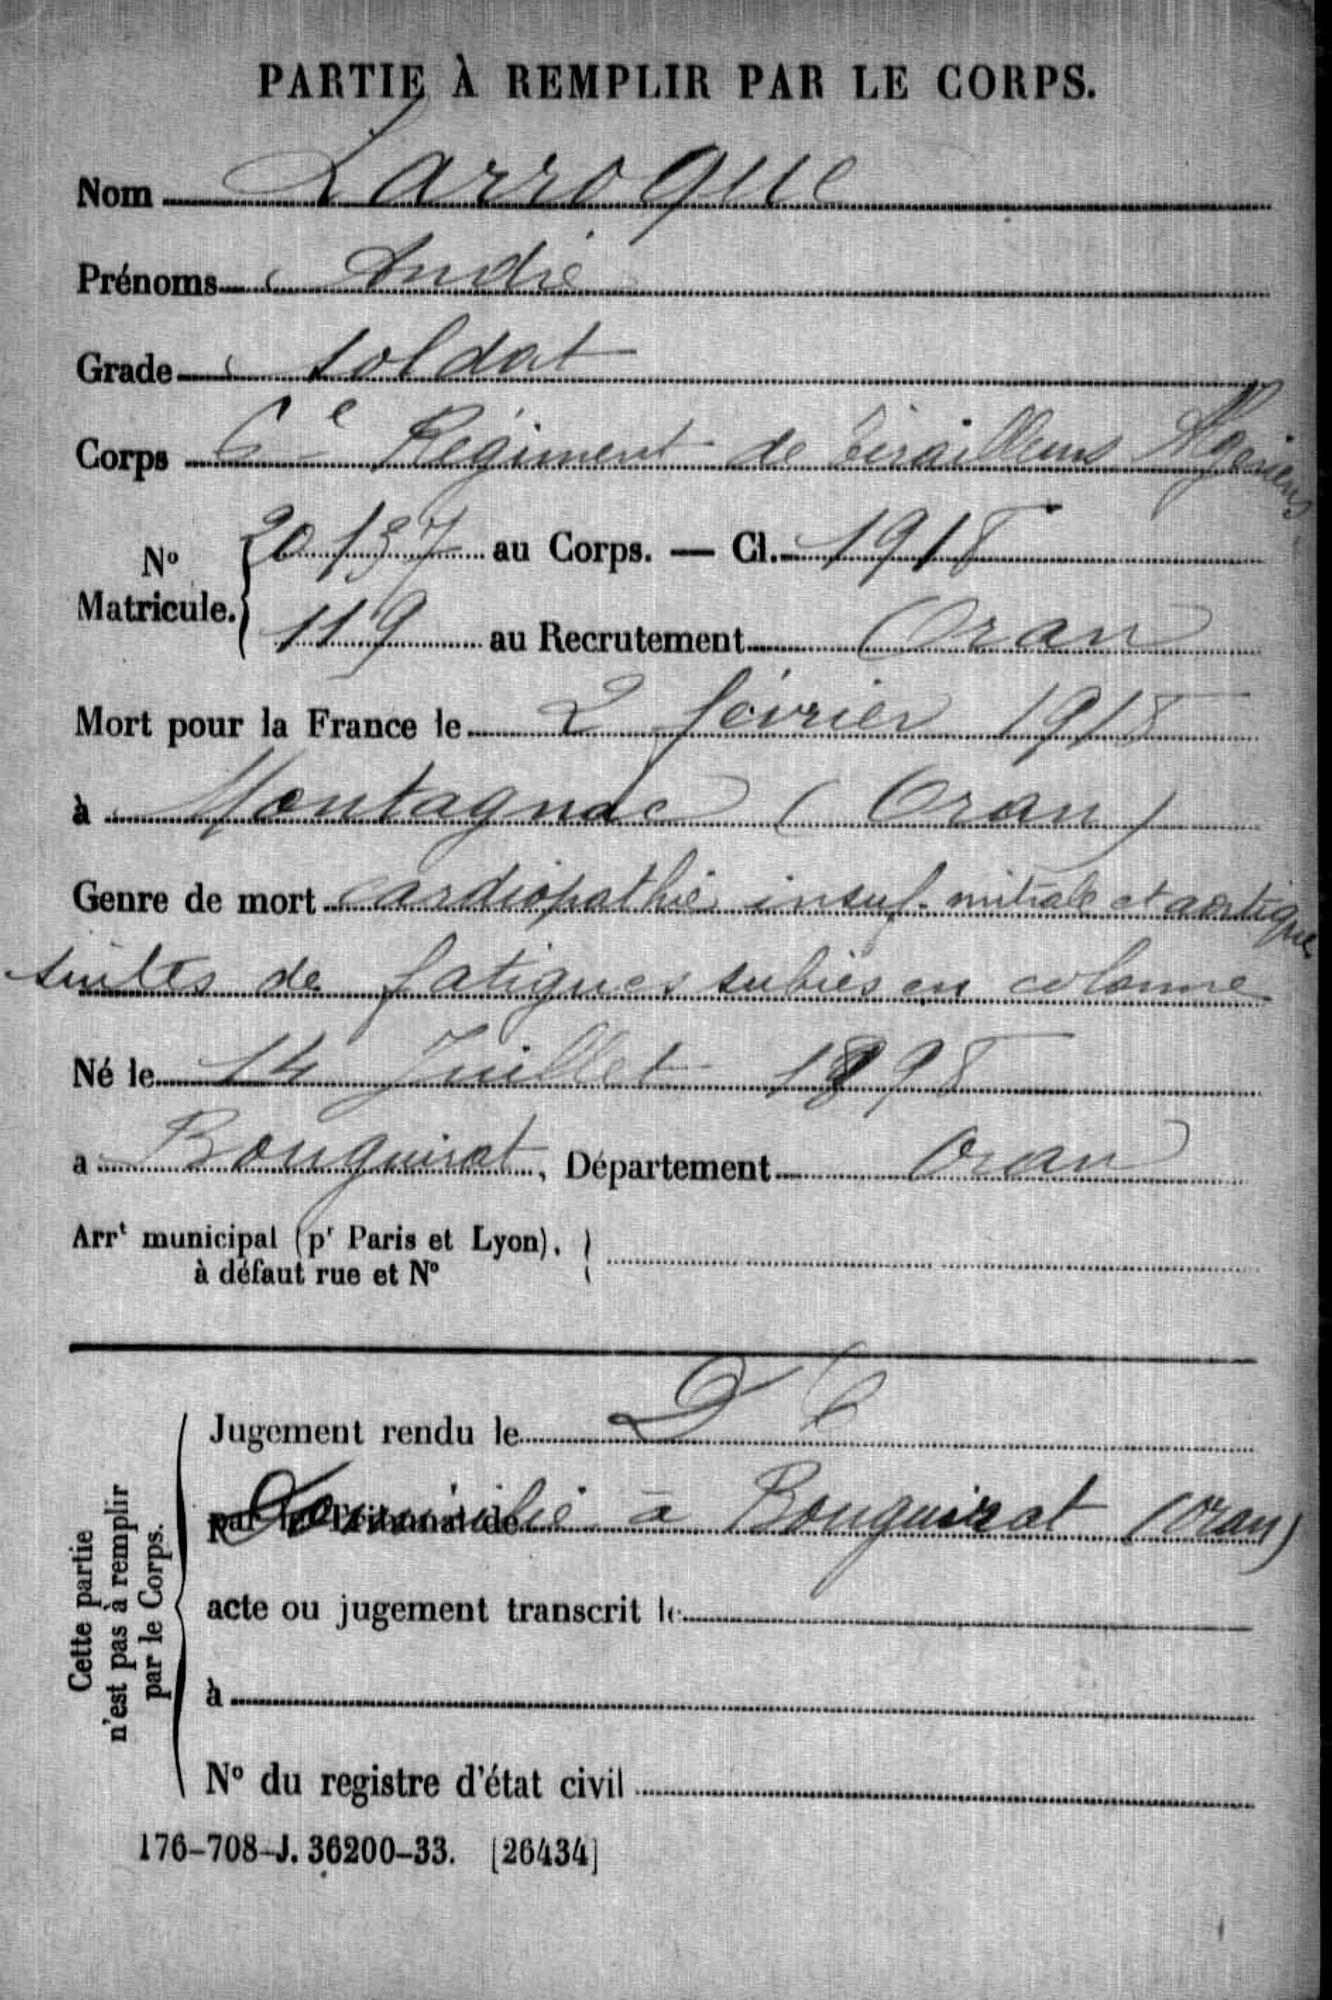 PARTIE À REMPLIR PAR LE CORPS.
Nom Larroque
Prénoms André
Grade soldat
Corps 6e Régiment de tirailleurs Algériens
No Matricule. 20137 au Corps. — Cl. 1918
119 au Recrutement Oran
Mort pour la France le 2 février 1918
à Montagnac (Oran)
Genre de mort cardiopathie insuf. mitrale et aortique
suites de fatigues subies en colonne
Né le 14 Juillet 1898
a Bouguirat, Département Oran
Arrt municipal (pr Paris et Lyon),
à défaut rue et No
Cette partie n'est pas à remplir par le Corps.
Jugement rendu le D C
par le Tribunal de Domicilié à Bouguirat (Oran)
acte ou jugement transcrit le
à
No du registre d'état civil
176-708-J. 36200-33. [26434]